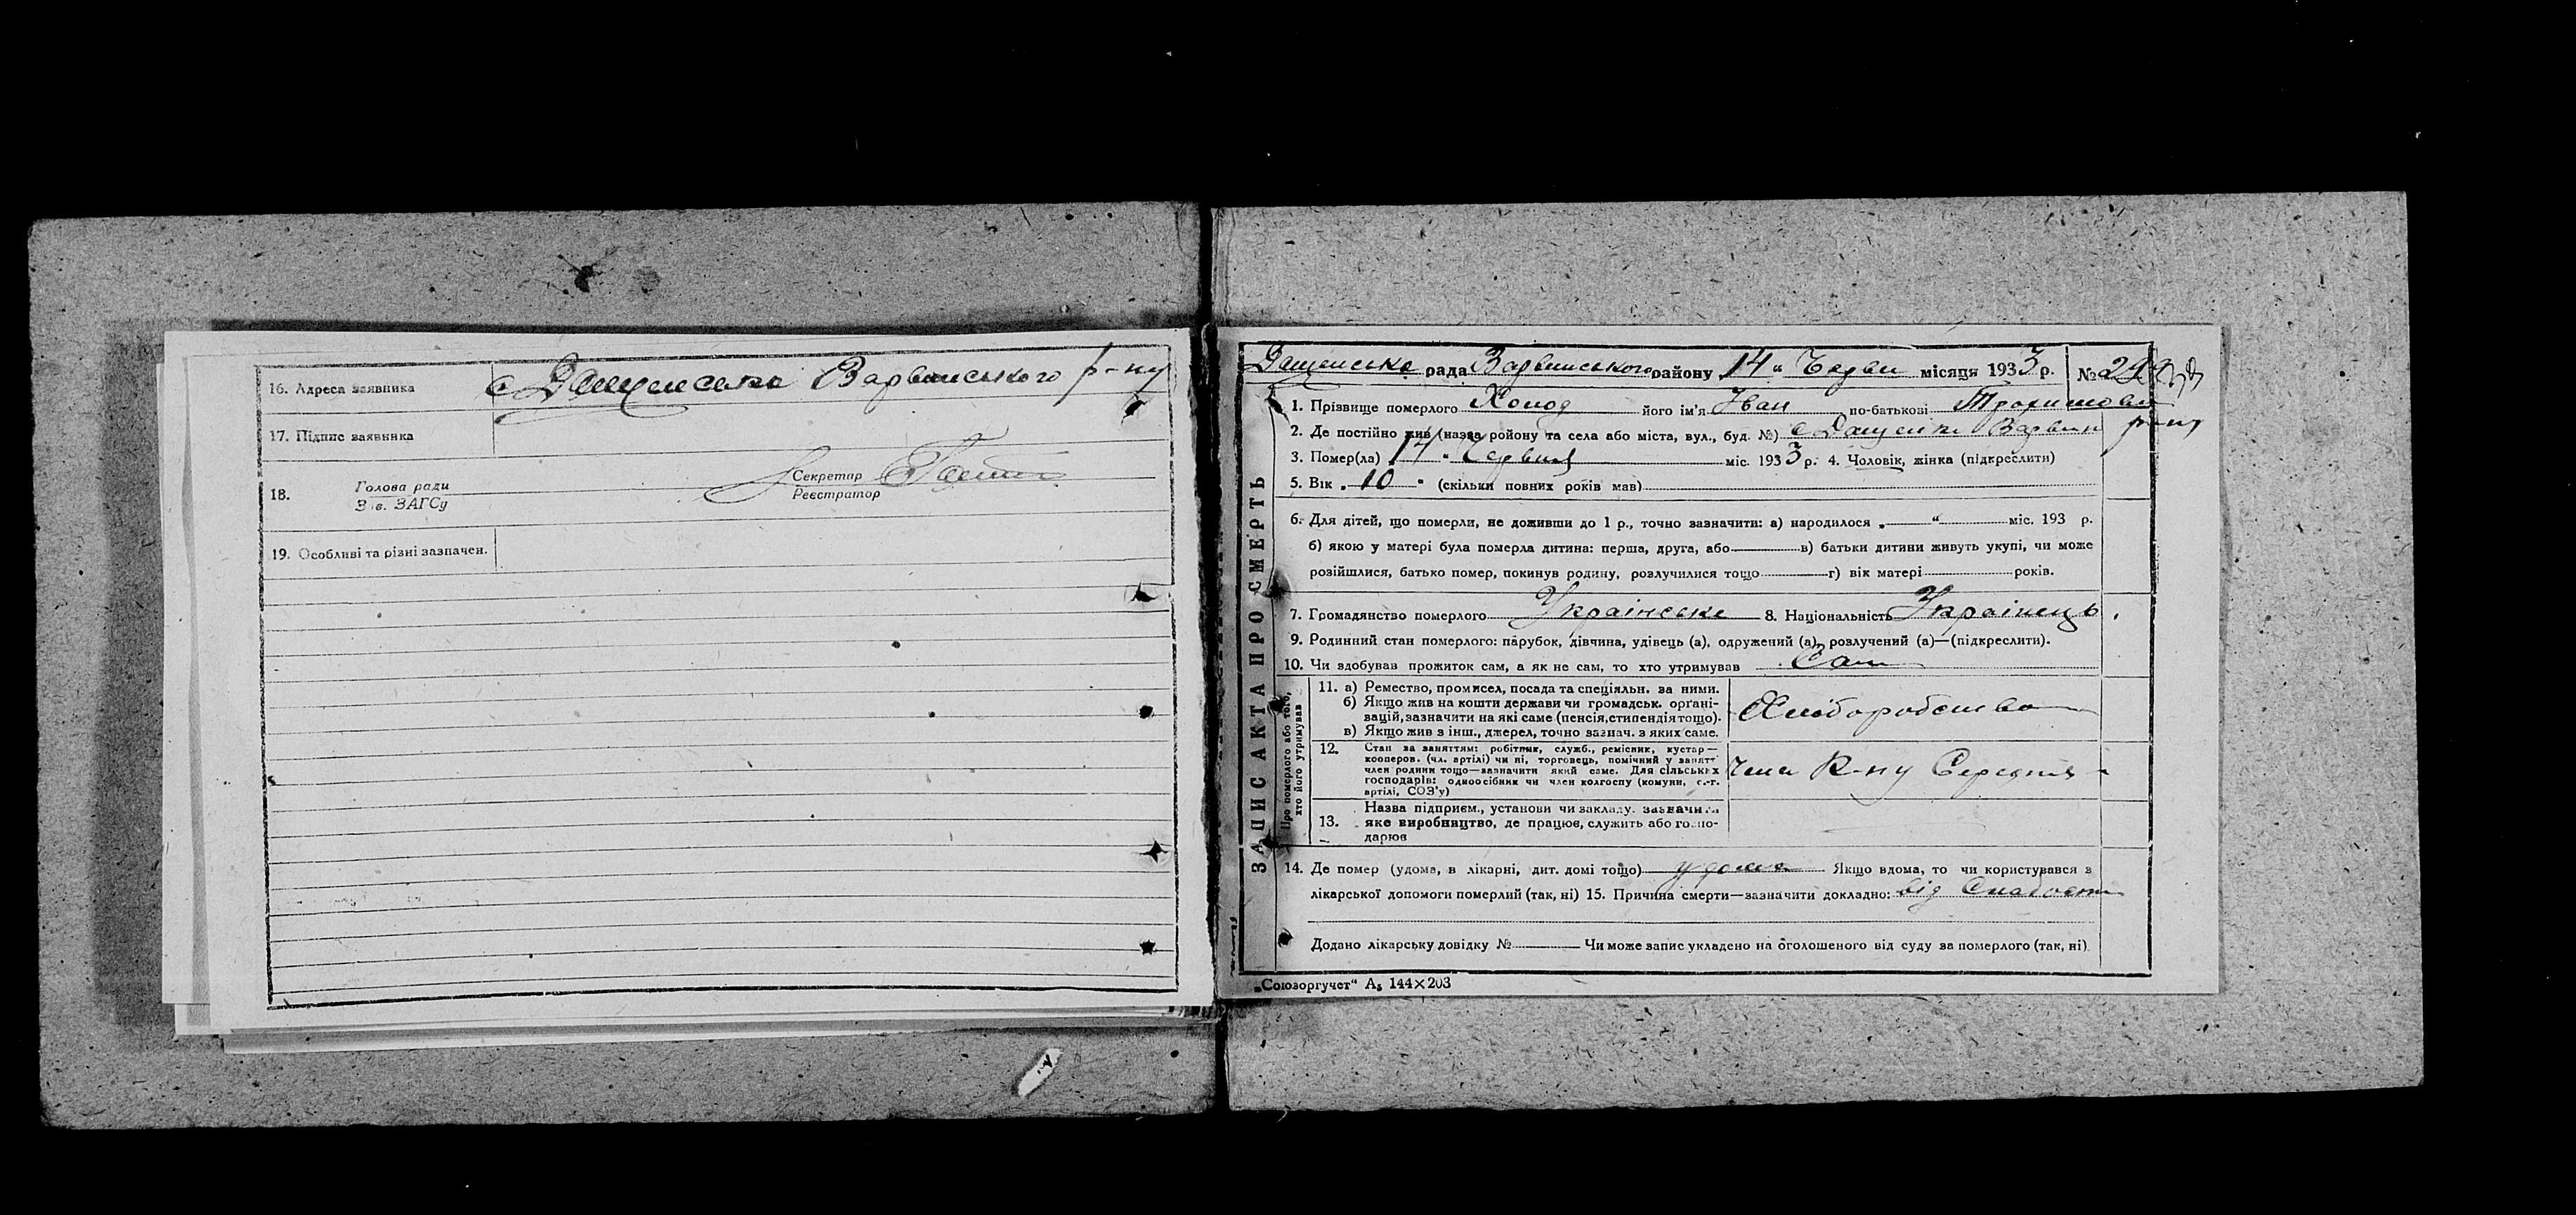 16. Адреса заявника с Дащенська Варвинського р-ну
17. Підпис заявника
18. Голова ради
Зав. ЗАГСу
Секретар
Реєстратор
19. Особливі та різні зазначен.
ЗАПИС АКТА ПРО СМЕРТЬ
Дащенська рада Варвинського району 14 " Черви місяця 1933 р. №
1. Прізвище померлого Холод його ім'я Іван по-батькові Трохимович
2. Де постійно жив (назва ройону та села або міста, вул., буд. №) с Дащенки Варвин р-ну
3. Помер(ла) 14 " Червня міс. 1933 р. 4. Чоловік, жінка (підкреслити)
5. Вік " 10 " (скільки повних років мав)
6. Для дітей, що померли, не доживши до 1 р., точно зазначити: а) народилося „ “ міс. 193 р.
б) якою у матері була померла дитина: перша, друга, або в) батьки дитини живуть укупі, чи може
розійшлися, батько помер, покинув родину, розлучилися тощо г) вік матері років.
7. Громадянство померлого Українське 8. Національність Українець
9. Родинний стан померлого: парубок, дівчина, удівець (а), одружений (а), розлучений (а)—(підкреслити).
10. Чи здобував прожиток сам, а як не сам, то хто утримував Сам
Про померлого або того,
хто його утримував
11. а) Ремество, промисел, посада та спеціяльн. за ними.
б) Якщо жив на кошти держави чи громадськ. органі-
зацій, зазначити на які саме (пенсія, стипендія тощо).
в) Якщо жив з інш., джерел, точно зазнач. з яких саме.
Хліборобство
12. Стан за заняттям: робітник, служб., ремісник, кустар—
кооперов. (чл. артілі) чи ні, торговець, помічний у занятт
член родини тощо—зазначити який саме. Для сільських
господарів: одноосібник чи член колгоспу (комуни, с.-г.
артілі, СОЗ'у)
Член К-пу Середняк
13. Назва підприєм., установи чи закладу. зазначити
яке виробництво, де працює, служить або госпо-
дарює
14. Де помер (удома, в лікарні, дит. домі тощо) у дома Якщо вдома, то чи користувався з
лікарської допомоги померлий (так, ні) 15. Причина смерти—зазначити докладно: від Слабости
Додано лікарську довідку № Чи може запис укладено на оголошеного від суду за померлого (так, ні)
„Союзоргучет“ А₅ 144×203